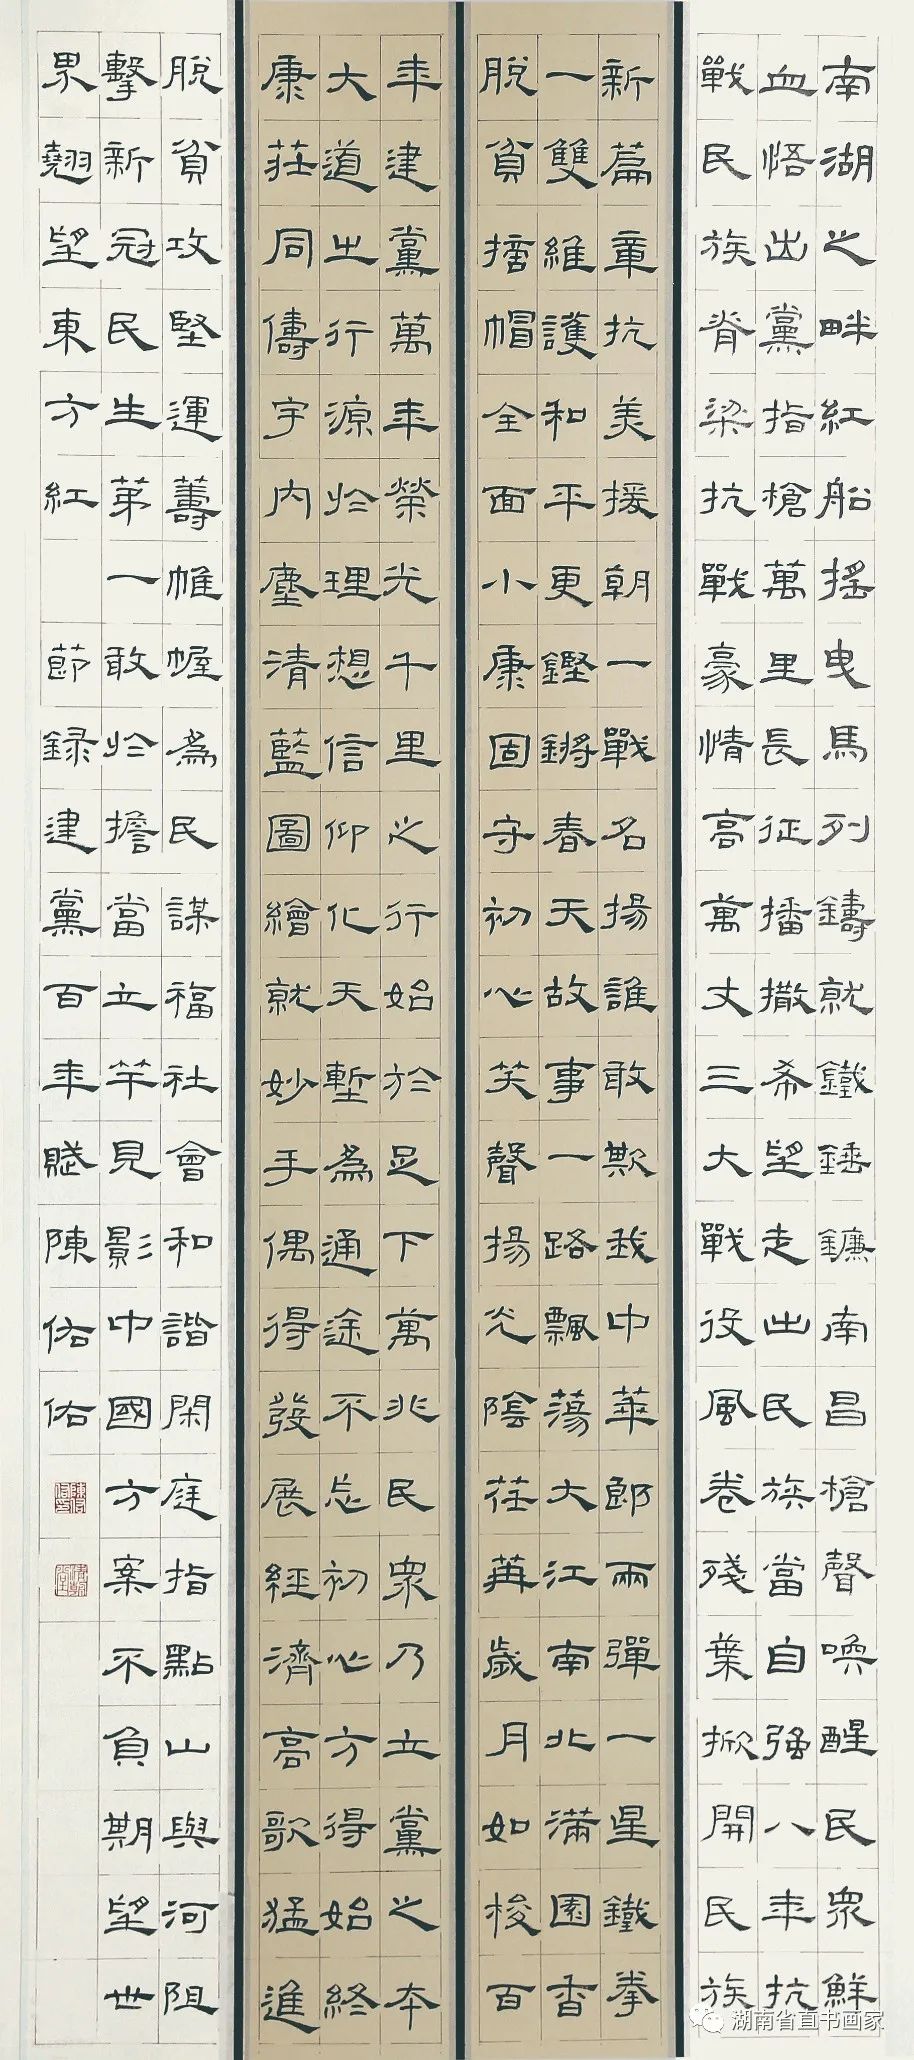 南湖之畔紅船搖曳馬列鑄就鐵錘鐮南昌槍聲喚醒民眾鮮
血悟出黨指槍萬里長征播撒希望走出民族當自強八年抗
戰民族脊梁抗戰豪情高萬丈三大戰役風卷殘葉掀開民族
新篇章抗美援朝一戰名揚誰敢欺我中華郎兩彈一星鐵拳
一雙維護和平更鏗鏘春天故事一路飄蕩大江南北滿園香
脫貧摘帽全面小康固守初心笑聲揚光陰荏苒歲月如梭百
年建黨萬年榮光千里之行始於足下萬兆民眾乃立黨之本
大道之行源於理想信仰化天塹為通途不忘初心方得始終
康莊同儔宇內塵清藍圖繪就妙手偶得發展經濟高歌猛進
脫貧攻堅運籌帷幄為民謀福社會和諧閑庭指點山與河阻
擊新冠民生第一敢於擔當立竿見影中國方案不負期望世
界翹望東方紅 節錄建黨百年賦陳佑佑
湖南省直书画家